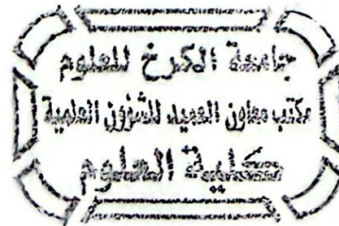 جامعة الكرخ للعلوم
مكتب معاون العميد للشؤون العلمية
كلية العلوم